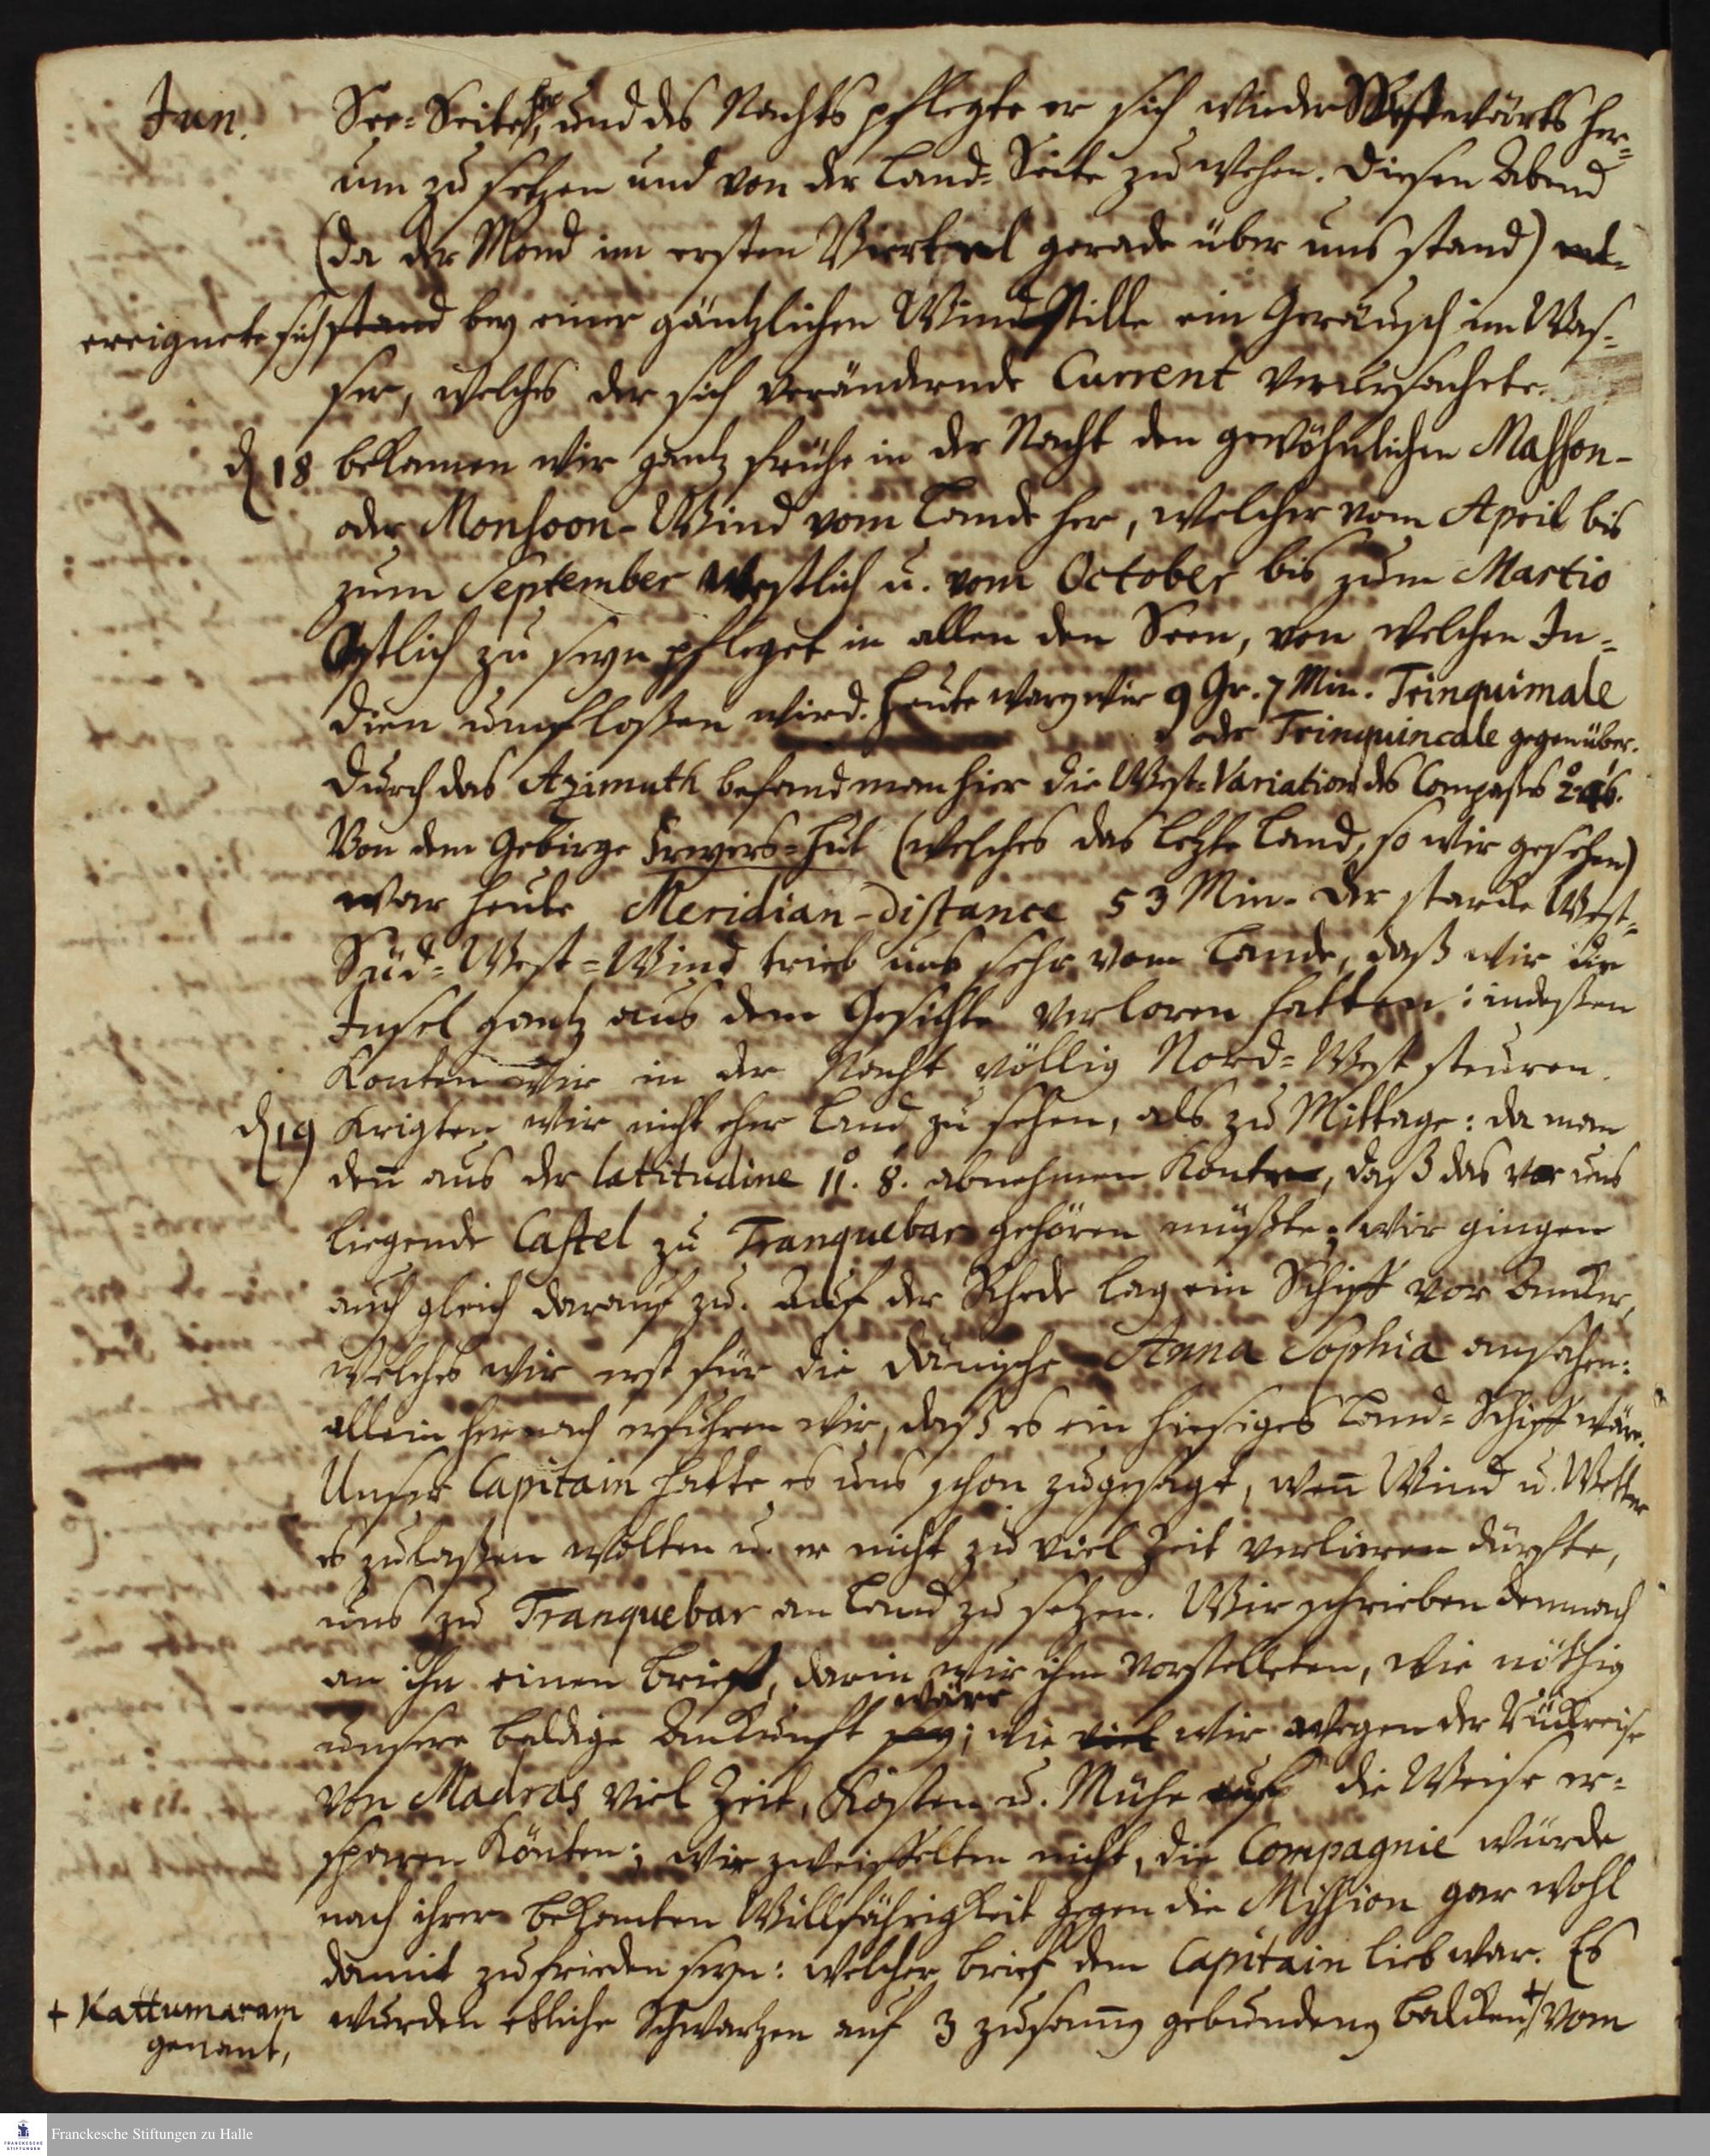 Jun.
See-Seite her, und des Nachts pflegte er sich wieder Westwärts her-
um zu setzen und von der Land-Seite zu wehen. Diesen Abend
(da der Mond im ersten Viertel gerade über uns stand) ent-
ereignete sich stand bey einer gäntzlichen Wind Stille ein Geräusch im Was-
ser, welches der sich verändernde Current verursachete.
d 18 bekamen wir gantz frühe in der Nacht den gewöhnlichen Masson-
oder Monsoon-Wind vom Lande her, welcher vom April bis
zum September Westlich u. vom October bis zum Martio
Ostlich zu seyn pfleget in allen den Seen, von welchen In-
dien umfloßen wird. Heute waren wir 9 Gr. 7 Min. Trinquimale
oder Trinquincale gegenüber.
Durch das Azimuth befand man hier die West-Variation des Compaßes
Von dem Gebirge (welches das letzte Land, so wir gesehen)
war heute Meridian-Distance 53 Min. Der starcke West-
Süd-West-Wind trieb uns sehr vom Lande, daß wir die
Insel gantz aus dem Gesichte verloren hatten: indeßen
konten wir in der Nacht völlig Nord-West steuren.
d 19 krigten wir nicht eher Land zu sehen, als zu Mittage: da man
deñ aus der latitudine 11°. 8'. abnehmen konte, daß das vor uns
liegende Castel zu Tranquebar gehören müßte; wir gingen
auch gleich darauf zu. Auf der Rhede lag ein Schiff vor Ancker,
welches wir erst für die dänische Anna Sophia ansahen:
allein hernach erfuhren wir, daß es ein hiesiges Land-Schiff wäre.
Unser Capitain hatte es uns schon zugesagt, weñ Wind u. Wetter
es zulaßen wolten u. er nicht zu viel Zeit verlieren dürfte,
uns zu Tranquebar an Land zu setzen. Wir schrieben demnach
an ihn einen Brief, darin wir ihm vorstelleten, wie nöthig
wäre
unsere baldige Ankunft sey; wie viel wir wegen der Rückreise
von Madras viel Zeit, Kosten u. Mühe auf die Weise er-
sparen könten; wir zweiffelten nicht, die Compagnie würde
nach ihrer bekanten Willfährigkeit gegen die Mission gar wohl
damit zufrieden seyn: welcher Brief dem Capitain lieb war. Es
wurden etliche Schwartzen auf 3 zusam̄en gebundenen Balcken + vom
+ Kattumaram
genant,
Franckesche Stiftungen zu Halle